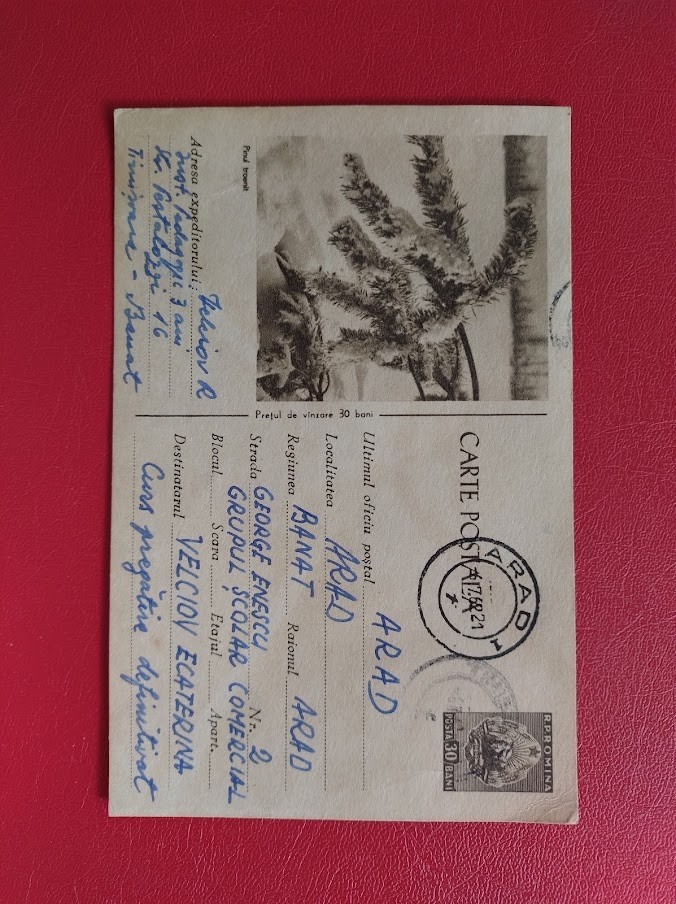 Pinul troenit
Adresa expeditorului: Velciov R
Inst. Pedagogic 3 ani
Str. Pestalozzi 16
Timișoara - Banat
Prețul de vînzare 30 bani
CARTE POȘTALĂ
ARAD
17.68.21
R.P.ROMINA
POSTA 30 BANI
Ultimul oficiu poștal ARAD
Localitatea ARAD
Regiunea BANAT Raionul ARAD
Strada GEORGE ENESCU Nr. 2
GRUPUL ȘCOLAR COMERCIAL
Blocul Scara Etajul Apart.
Destinatarul VELCIOV ECATERINA
Curs pregătire definitivat